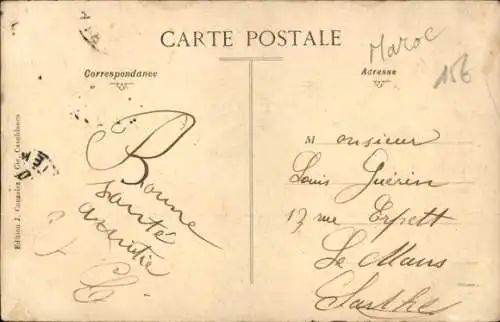 CARTE POSTALE
Maroc
156
Correspondance
Adresse
Bonne
santé
Monsieur
Louis Guérin
17 rue Erpell
Le Mans
Sarthe
Edition J. & Cie, Casablanca